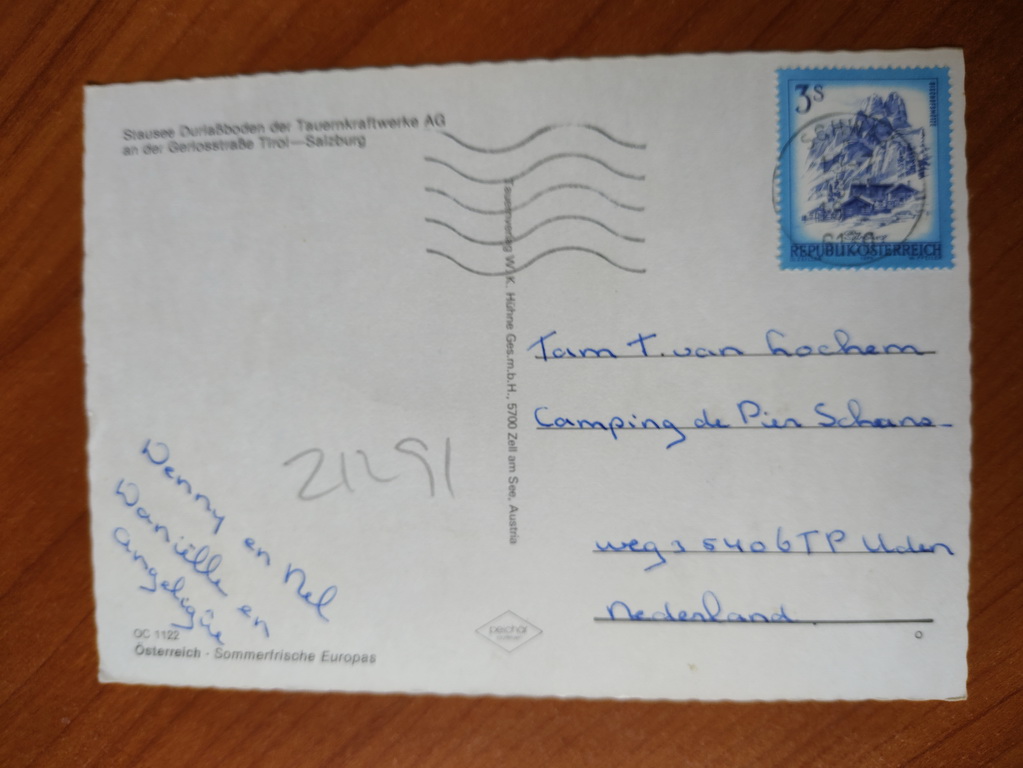 Stausee Durlaßboden der Tauernkraftwerke AG
an der Gerlosstraße Tirol—Salzburg
3S
REPUBLIK ÖSTERREICH
Tauernverlag W. K. Hühne Ges.m.b.H., 5700 Zell am See, Austria
Fam T. van Lochem
Camping de Pier
weg 3 5406TP Uden
Nederland
21291
Wenny en Nel
Daniëlle en
QC 1122
Österreich · Sommerfrische Europas
pechar